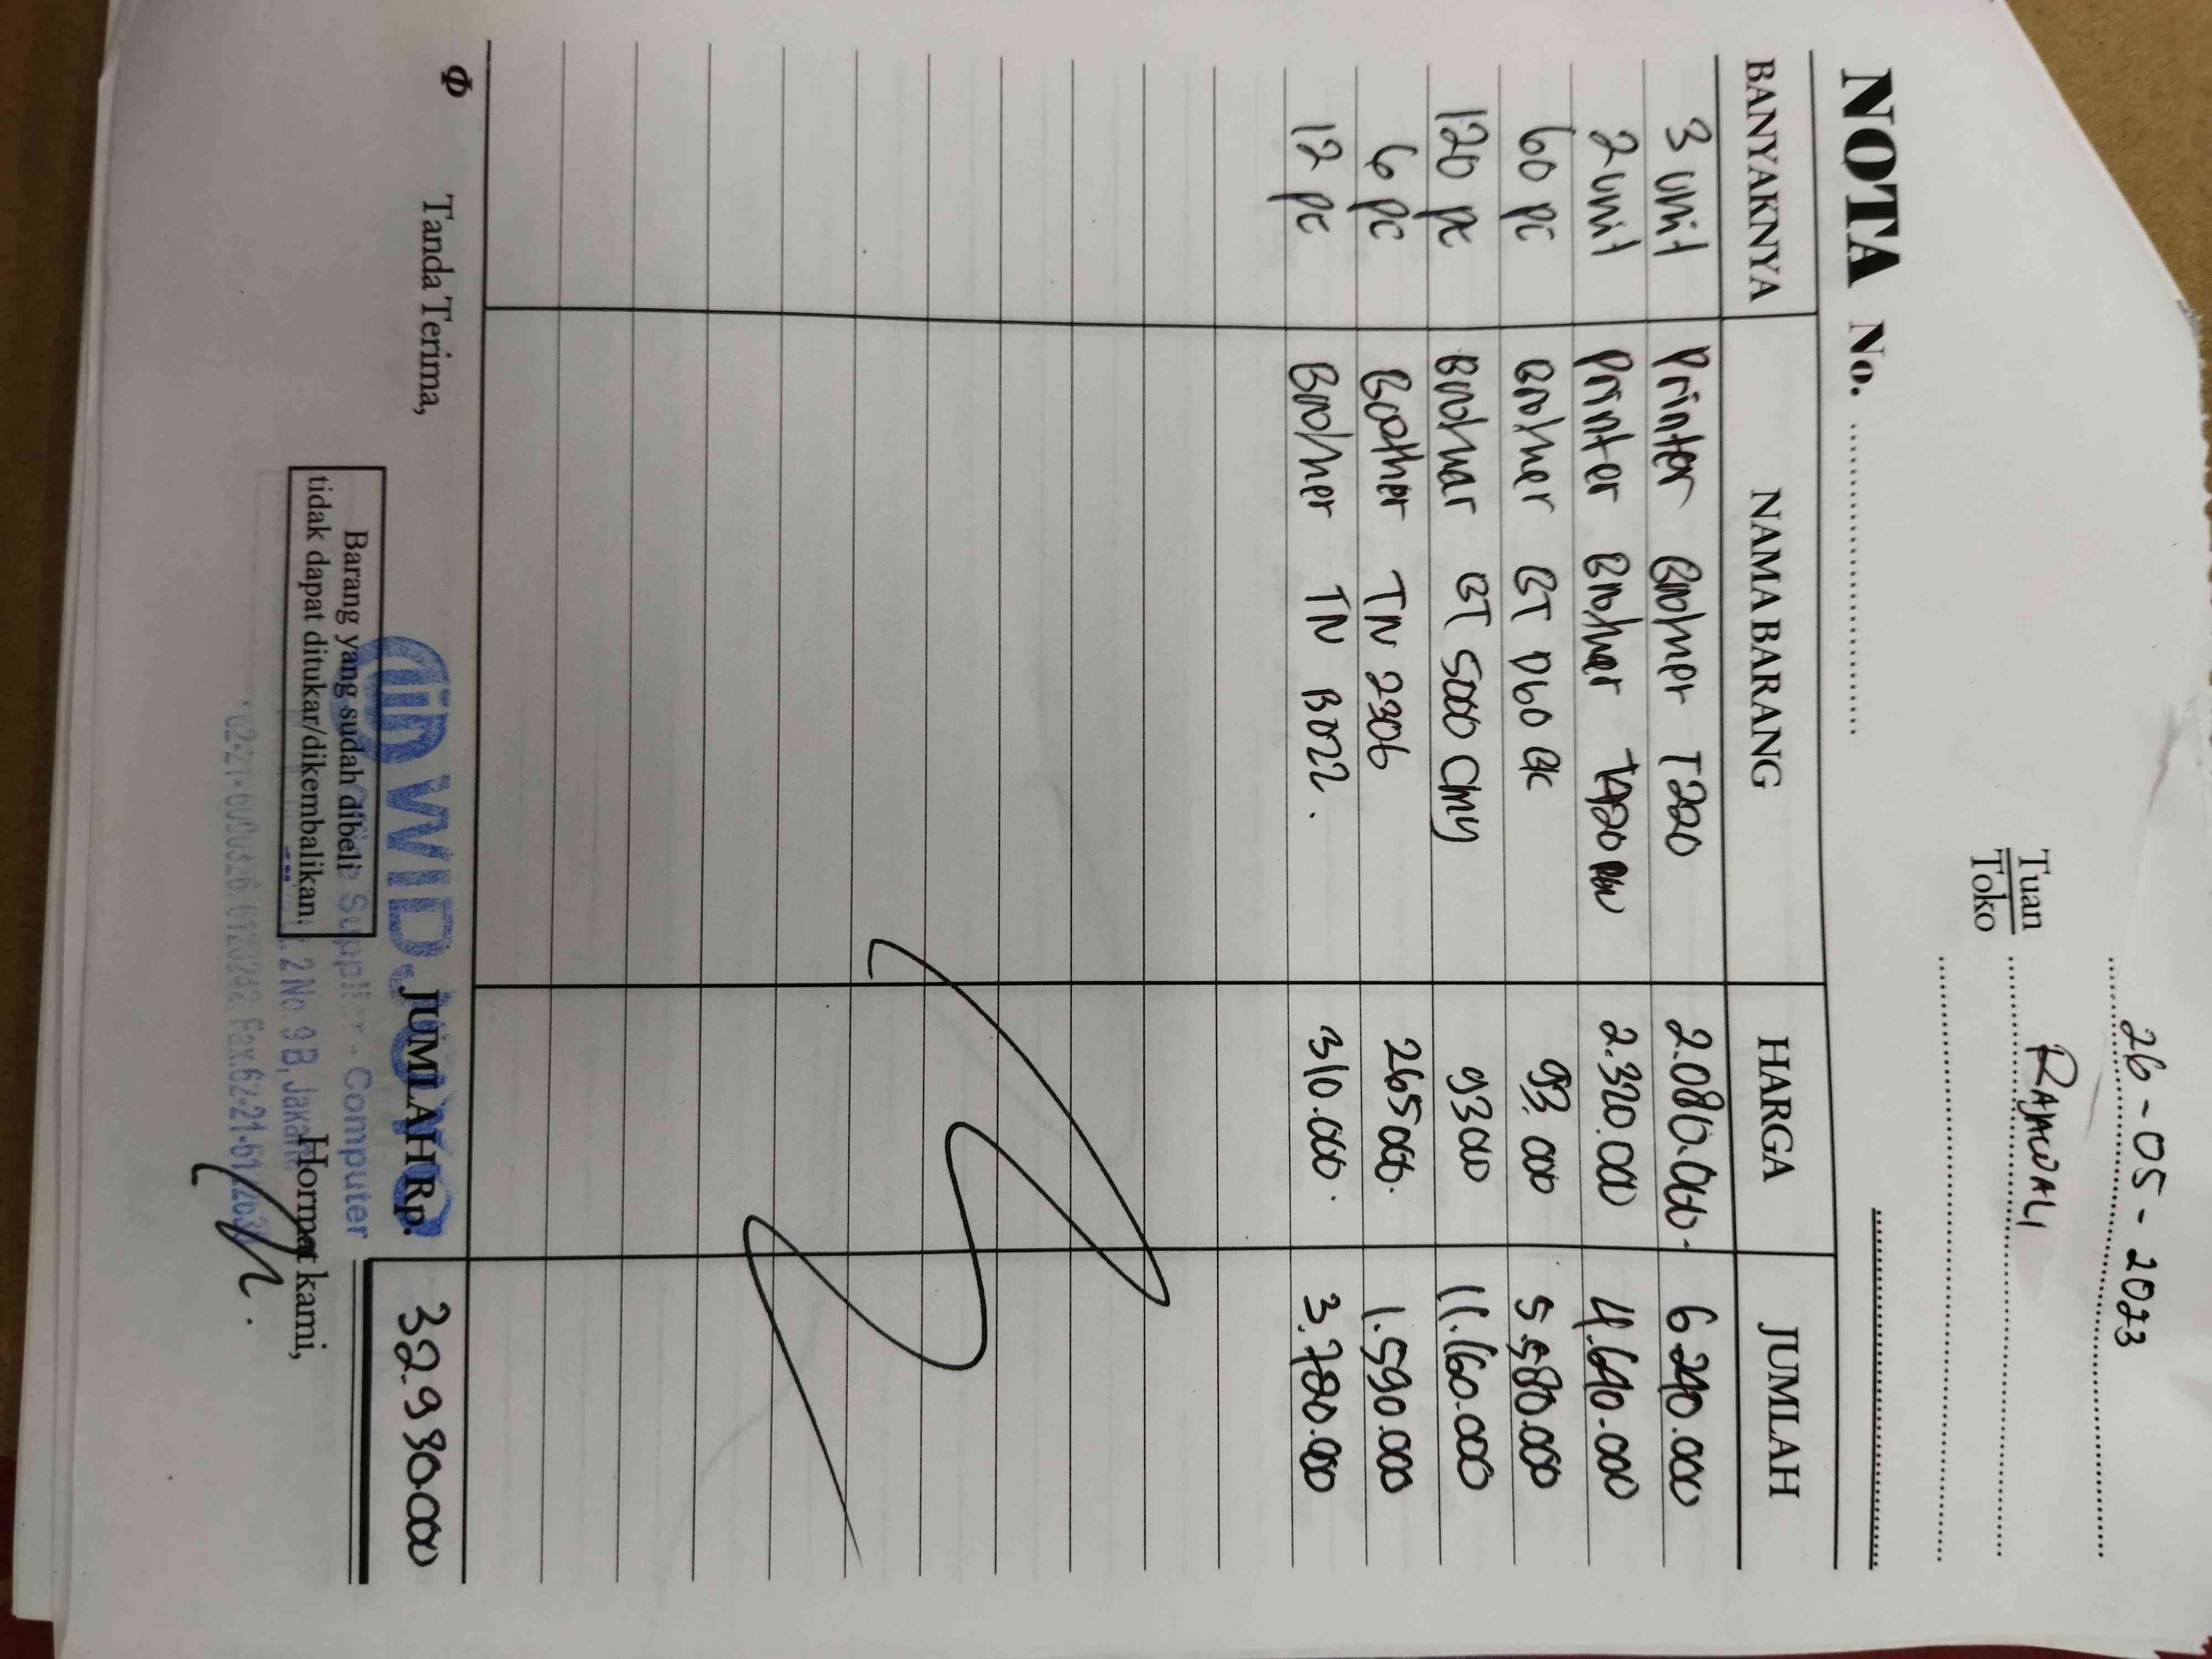 26-05-2023
NOTA No.
Tuan RAJAWALI
Toko
BANYAKNYA NAMA BARANG HARGA JUMLAH
3 unit Printer Brother T220 2.080.000. 6.240.000
2 unit Printer Brother T420 2.320.000 4.640.000
60 pc Brother BT D60 BK 93.000 5.580.000
120 pc Brother BT 5000 CMY 93000 11.160.000
6 pc Brother TN 2306 265000. 1.590.000
12 pc Brother TN B022. 310.000. 3.720.000
JUMLAH Rp. 32.930000
Φ Tanda Terima,
WIDJOJO
Supplier - Computer
2 No. 9 B, Jakarta
Barang yang sudah dibeli
tidak dapat ditukar/dikembalikan
Hormat kami,